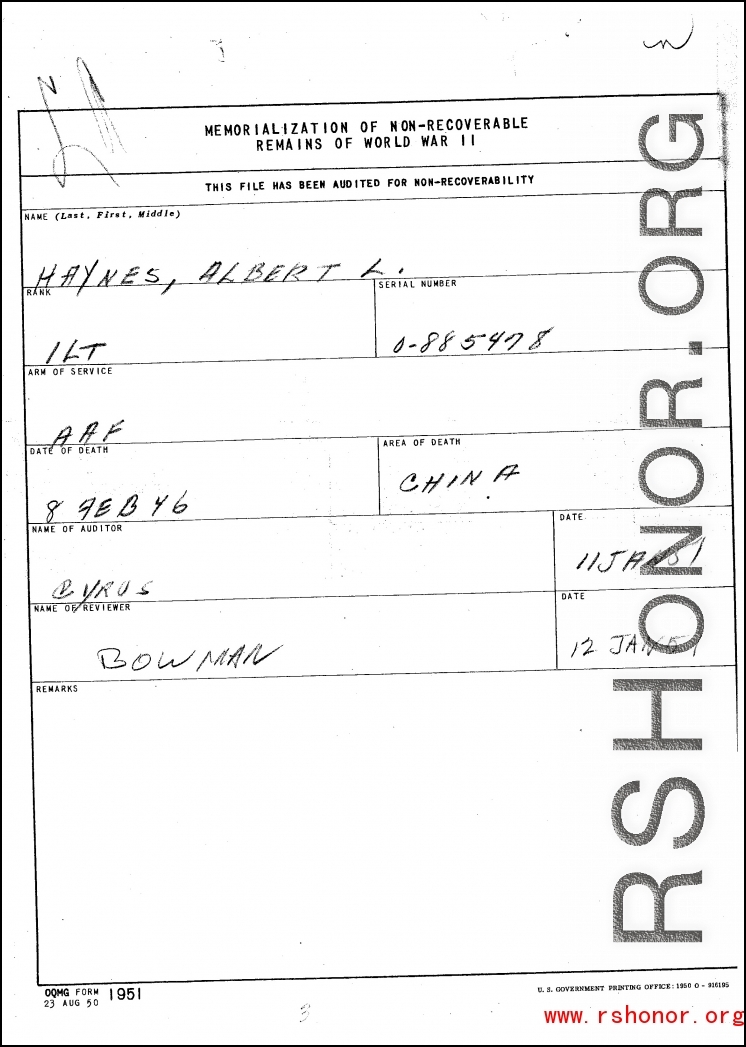 MEMORIALIZATION OF NON-RECOVERABLE
REMAINS OF WORLD WAR II
THIS FILE HAS BEEN AUDITED FOR NON-RECOVERABILITY
NAME (Last, First, Middle)
HAYNES, ALBERT L.
RANK
SERIAL NUMBER
1LT
0-885478
ARM OF SERVICE
AAF
DATE OF DEATH
AREA OF DEATH
8 FEB 46
CHINA
NAME OF AUDITOR
DATE
CYRUS
11 JAN 51
NAME OF REVIEWER
DATE
BOWMAN
12 JAN 51
REMARKS
OQMG FORM 1951
23 AUG 50
U. S. GOVERNMENT PRINTING OFFICE: 1950 O - 916195
3
RSHONOR.ORG
www.rshonor.org